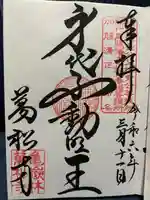 奉拝
令和六年
三月十一日
身代不動明王
萬松寺